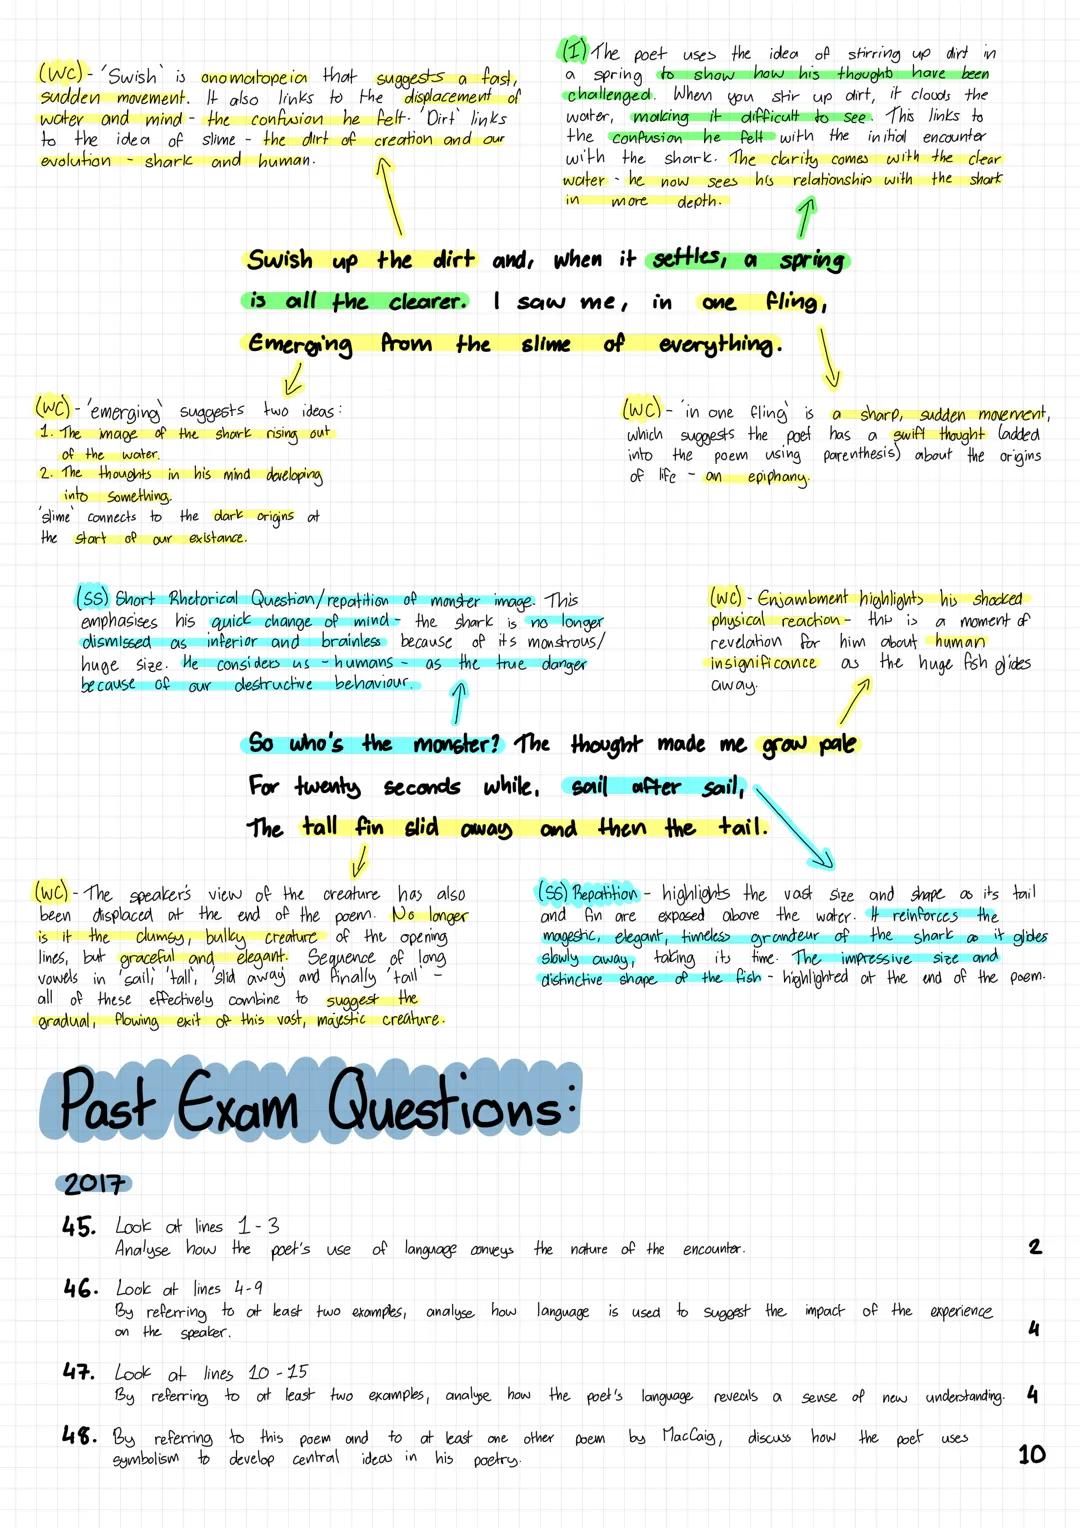 (WC) - 'Swish' is onomatopeia that suggests a fast,
sudden movement. It also links to the displacement of
water and mind - the confusion he felt. 'Dirt' links
to the idea of slime - the dirt of creation and our
evolution - shark and human.
(I) The poet uses the idea of stirring up dirt in
a spring to show how his thoughts have been
challenged. When you stir up dirt, it clouds the
water, making it difficult to see. This links to
the confusion he felt with the initial encounter
with the shark. The clarity comes with the clear
water - he now sees his relationship with the shark
in more depth.
Swish up the dirt and, when it settles, a spring
is all the clearer. I saw me, in one fling,
Emerging from the slime of everything.
(WC) - 'emerging' suggests two ideas:
1. The image of the shark rising out
of the water.
2. The thoughts in his mind developing
into something.
'slime' connects to the dark origins at
the start of our existance.
(WC) - 'in one fling' is a sharp, sudden movement,
which suggests the poet has a swift thought (added
into the poem using parenthesis) about the origins
of life - an epiphany.
(SS) Short Rhetorical Question/repatition of monster image. This
emphasises his quick change of mind - the shark is no longer
dismissed as inferior and brainless because of its monstrous/
huge size. He considers us - humans - as the true danger
because of our destructive behaviour.
(WC) - Enjambment highlights his shocked
physical reaction - this is a moment of
revelation for him about human
insignificance as the huge fish glides
away.
So who's the monster? The thought made me grow pale
For twenty seconds while, sail after sail,
The tall fin slid away and then the tail.
(WC) - The speaker's view of the creature has also
been displaced at the end of the poem. No longer
is it the clumsy, bulky creature of the opening
lines, but graceful and elegant. Sequence of long
vowels in 'sail', 'tall', 'slid away' and finally 'tail' -
all of these effectively combine to suggest the
gradual, flowing exit of this vast, majestic creature.
(SS) Repatition - highlights the vast size and shape as its tail
and fin are exposed above the water. It reinforces the
magestic, elegant, timeless grandeur of the shark as it glides
slowly away, taking its time. The impressive size and
distinctive shape of the fish - highlighted at the end of the poem.
Past Exam Questions:
2017
45. Look at lines 1-3
Analyse how the poet's use of language conveys the nature of the encounter. 2
46. Look at lines 4-9
By referring to at least two examples, analyse how language is used to suggest the impact of the experience
on the speaker. 4
47. Look at lines 10-15
By referring to at least two examples, analyse how the poet's language reveals a sense of new understanding. 4
48. By referring to this poem and to at least one other poem by MacCaig, discuss how the poet uses
symbolism to develop central ideas in his poetry. 10